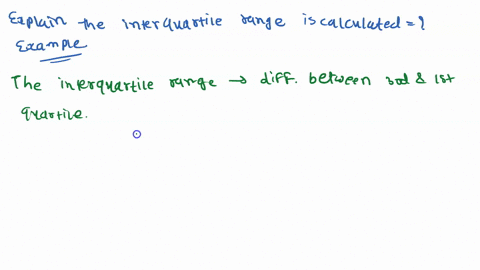 Explain the interquartile range is calculated = ?
Example
The interquartile range → diff. between 3rd & 1st
quartile.